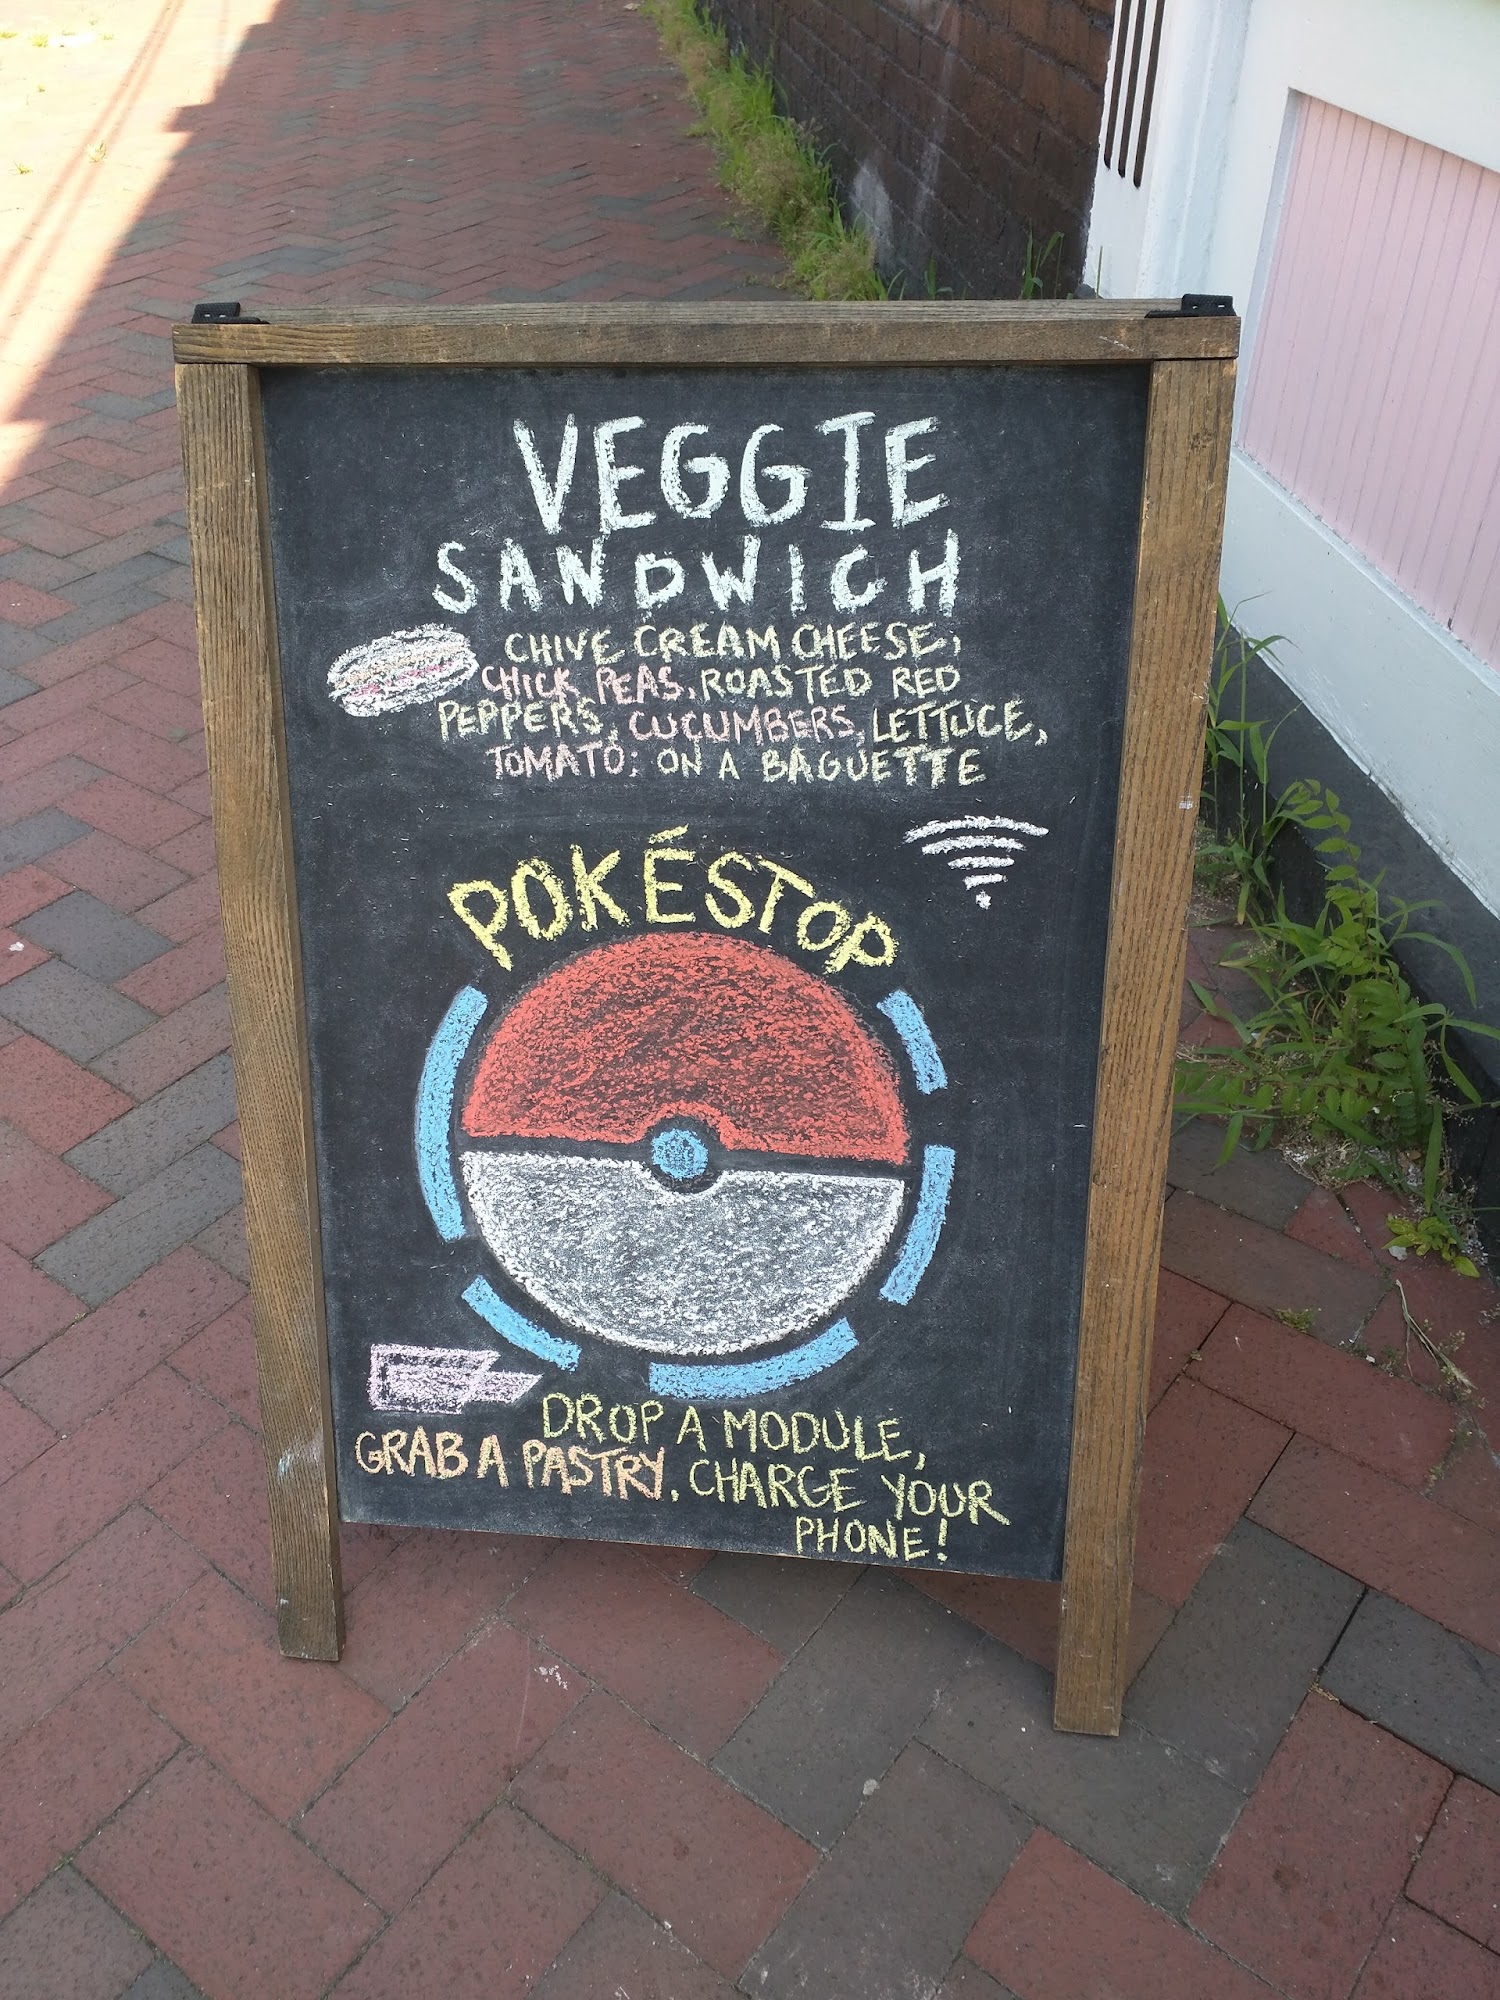 VEGGIE
SANDWICH
CHIVE CREAM CHEESE,
CHICK PEAS, ROASTED RED
PEPPERS, CUCUMBERS, LETTUCE,
TOMATO: ON A BAGUETTE
POKÉSTOP
DROP A MODULE,
GRAB A PASTRY, CHARGE YOUR
PHONE!